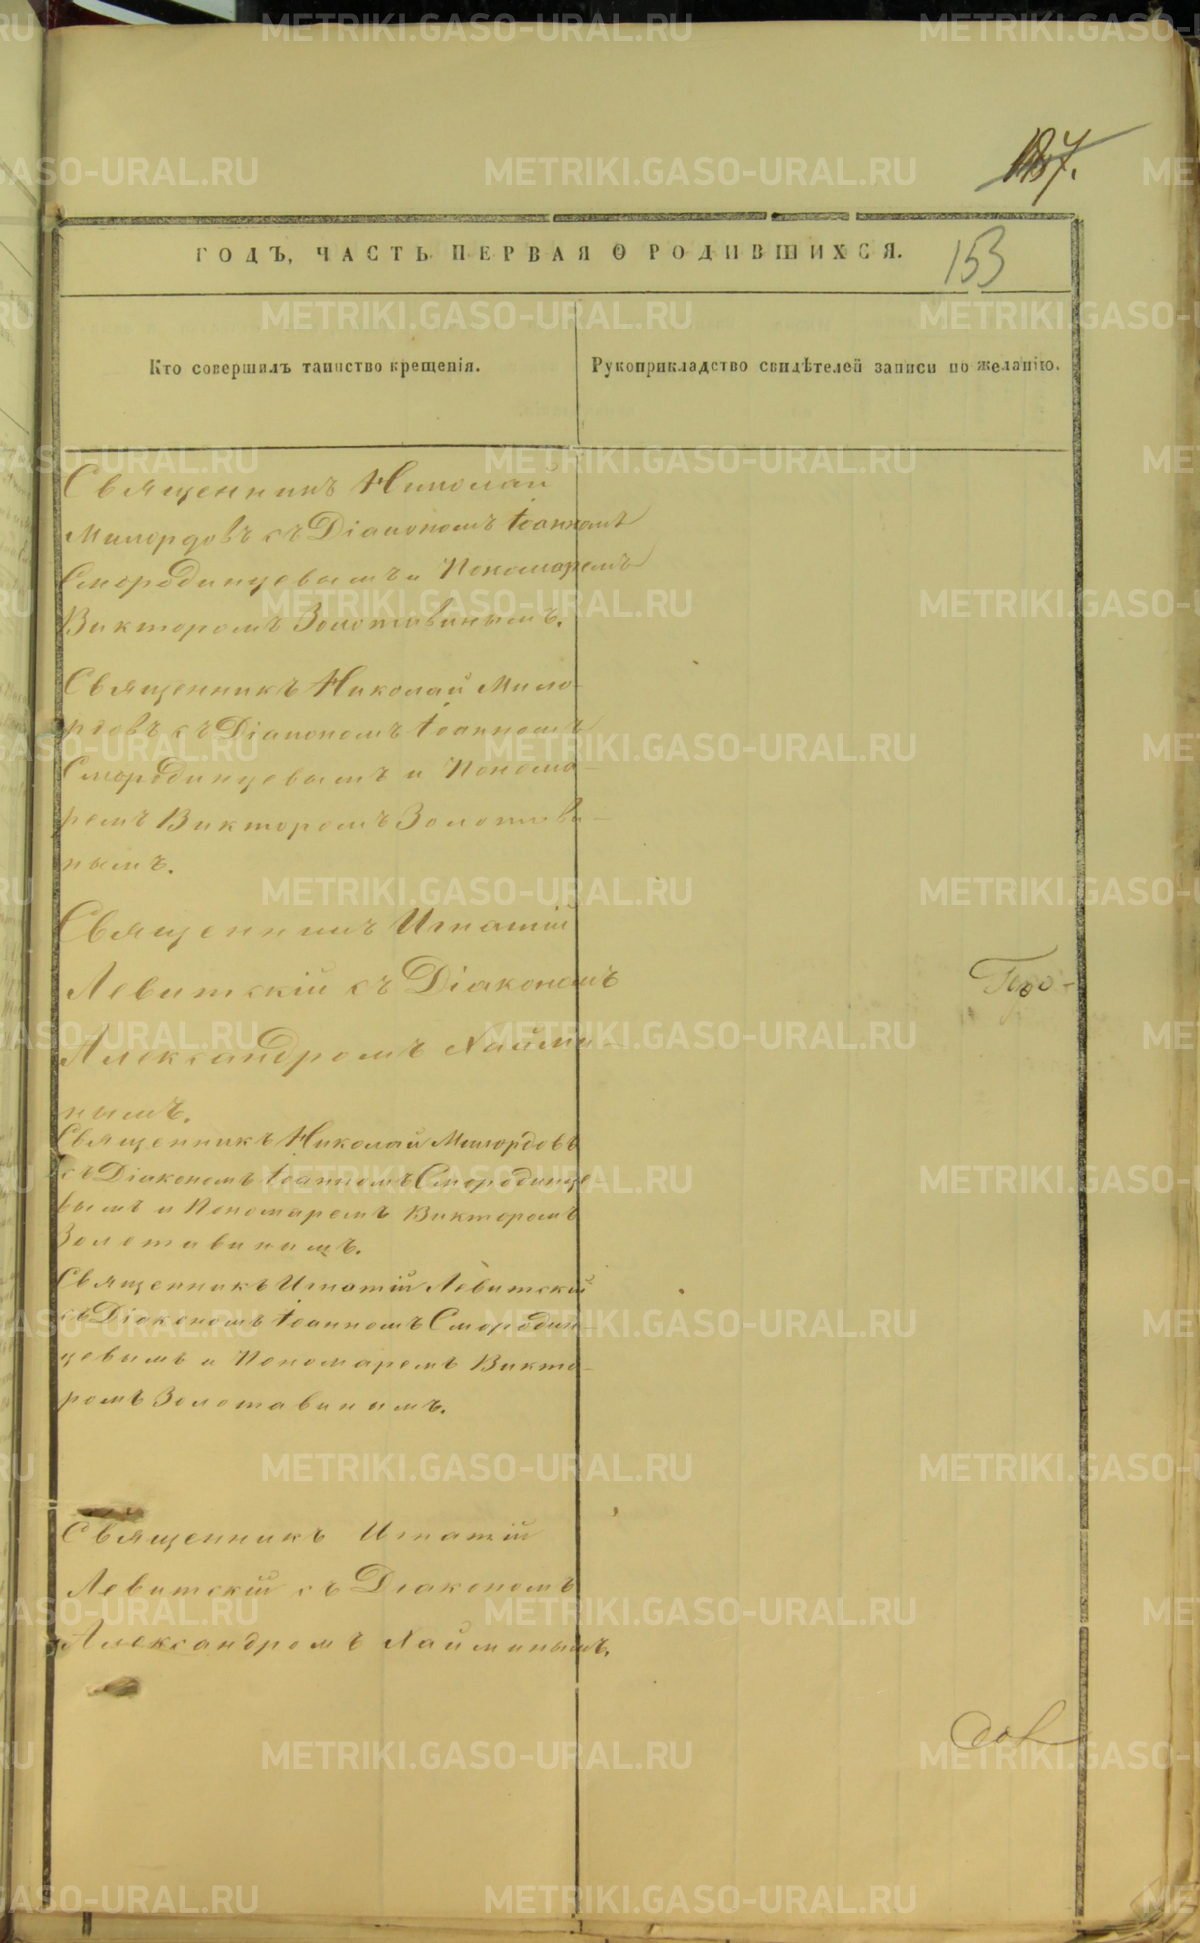 187.
ГОДЪ, ЧАСТЬ ПЕРВАЯ О РОДИВШИХСЯ.
153
Кто совершилъ таинство крещенія.
Рукоприкладство свидѣтелей записи по желанію.
Священникъ Николай
Милордовъ съ Діакономъ Іоанномъ
Смородинцевымъ и Пономаремъ
Викторомъ Золотавинымъ.
Священникъ Николай Мило-
рдовъ съ Діакономъ Іоанномъ
Смородинцевымъ и Понома-
ремъ Викторомъ Золотави-
нымъ.
Священникъ Игнатій
Левитскій съ Діакономъ
Про-
Александромъ
нымъ.
Священникъ Николай Милордовъ
съ Діакономъ Іоанномъ Смородинце-
вымъ и Пономаремъ Викторомъ
Золотавинымъ.
Священникъ Игнатій Левитскій
съ Діакономъ Іоанномъ Смородин-
цевымъ и Пономаремъ Викто-
ромъ Золотавинымъ.
Священникъ Игнатій
Левитскій съ Діакономъ
Александромъ
METRIKI.GASO-URAL.RU